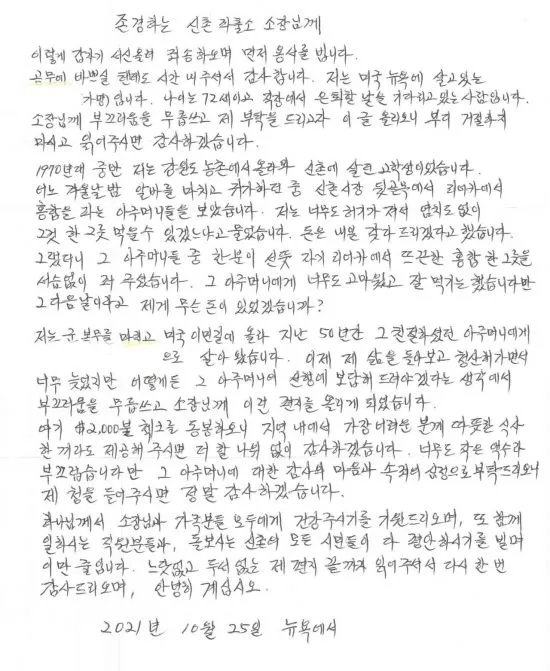 존경하는 신촌 파출소 소장님께
이렇게 갑자기 서신올려 죄송하오며 먼저 용서를 빕니다.
공무에 바쁘실 텐데도 시간 내주셔서 감사합니다. 저는 미국 뉴욕에 살고있는
가명)입니다. 나이는 72세이고 직장에서 은퇴할 날을 기다리고 있는 사람입니다.
소장님께 부끄러움을 무릅쓰고 제 부탁을 드리고자 이 글 올리오니 부디 거절하지
마시고 읽어주시면 감사하겠습니다.
1970년대 중반 저는 강원도 농촌에서 올라와 신촌에 살던 고학생이었습니다.
어느 겨울날 밤 알바를 마치고 귀가하던 중 신촌시장 뒷골목에서 리어카에서
홍합을 파는 아주머니들을 보았습니다. 저는 너무도 허기가 져서 염치도 없이
그것 한 그릇 먹을 수 있겠느냐고 물었습니다. 돈은 내일 갖다 드리겠다고 했습니다.
그랬더니 그 아주머니들 중 한분이 선뜻 자기 리어카에서 뜨끈한 홍합 한 그릇을
서슴없이 퍼 주었습니다. 그 아주머니에게 너무도 고마웠고 잘 먹기는 했습니다만
그 다음날이라고 제게 무슨 돈이 있었겠습니까?
저는 군 복무를 마치고 미국 이민길에 올라 지난 50년간 그 친절하셨던 아주머니에게
으로 살아 왔습니다. 이제 제 삶을 돌아보고 청산해가면서
너무 늦었지만 어떻게든 그 아주머니의 선행에 보답해 드려야겠다는 생각에서
부끄러움을 무릅쓰고 소장님께 이런 편지를 올리게 되었습니다.
여기 $2,000불 체크를 동봉하오니 지역 내에서 가장 어려운 분께 따뜻한 식사
한 끼라도 제공해 주시면 더 할 나위 없이 감사하겠습니다. 너무도 작은 액수라
부끄럽습니다만 그 아주머니에 대한 감사의 마음과 속죄의 심정으로 부탁드리오니
제 청을 들어주시면 정말 감사하겠습니다.
하나님께서 소장님과 가족분들 모두에게 건강주시기를 기원드리오며, 또 함께
일하시는 직원분들과, 돌보시는 신촌의 모든 시민들이 다 평안하시기를 빌며
이만 줄입니다. 느닷없고 두서 없는 제 편지 끝까지 읽어주셔서 다시 한 번
감사드리오며, 안녕히 계십시오.
2021년 10월 25일 뉴욕에서